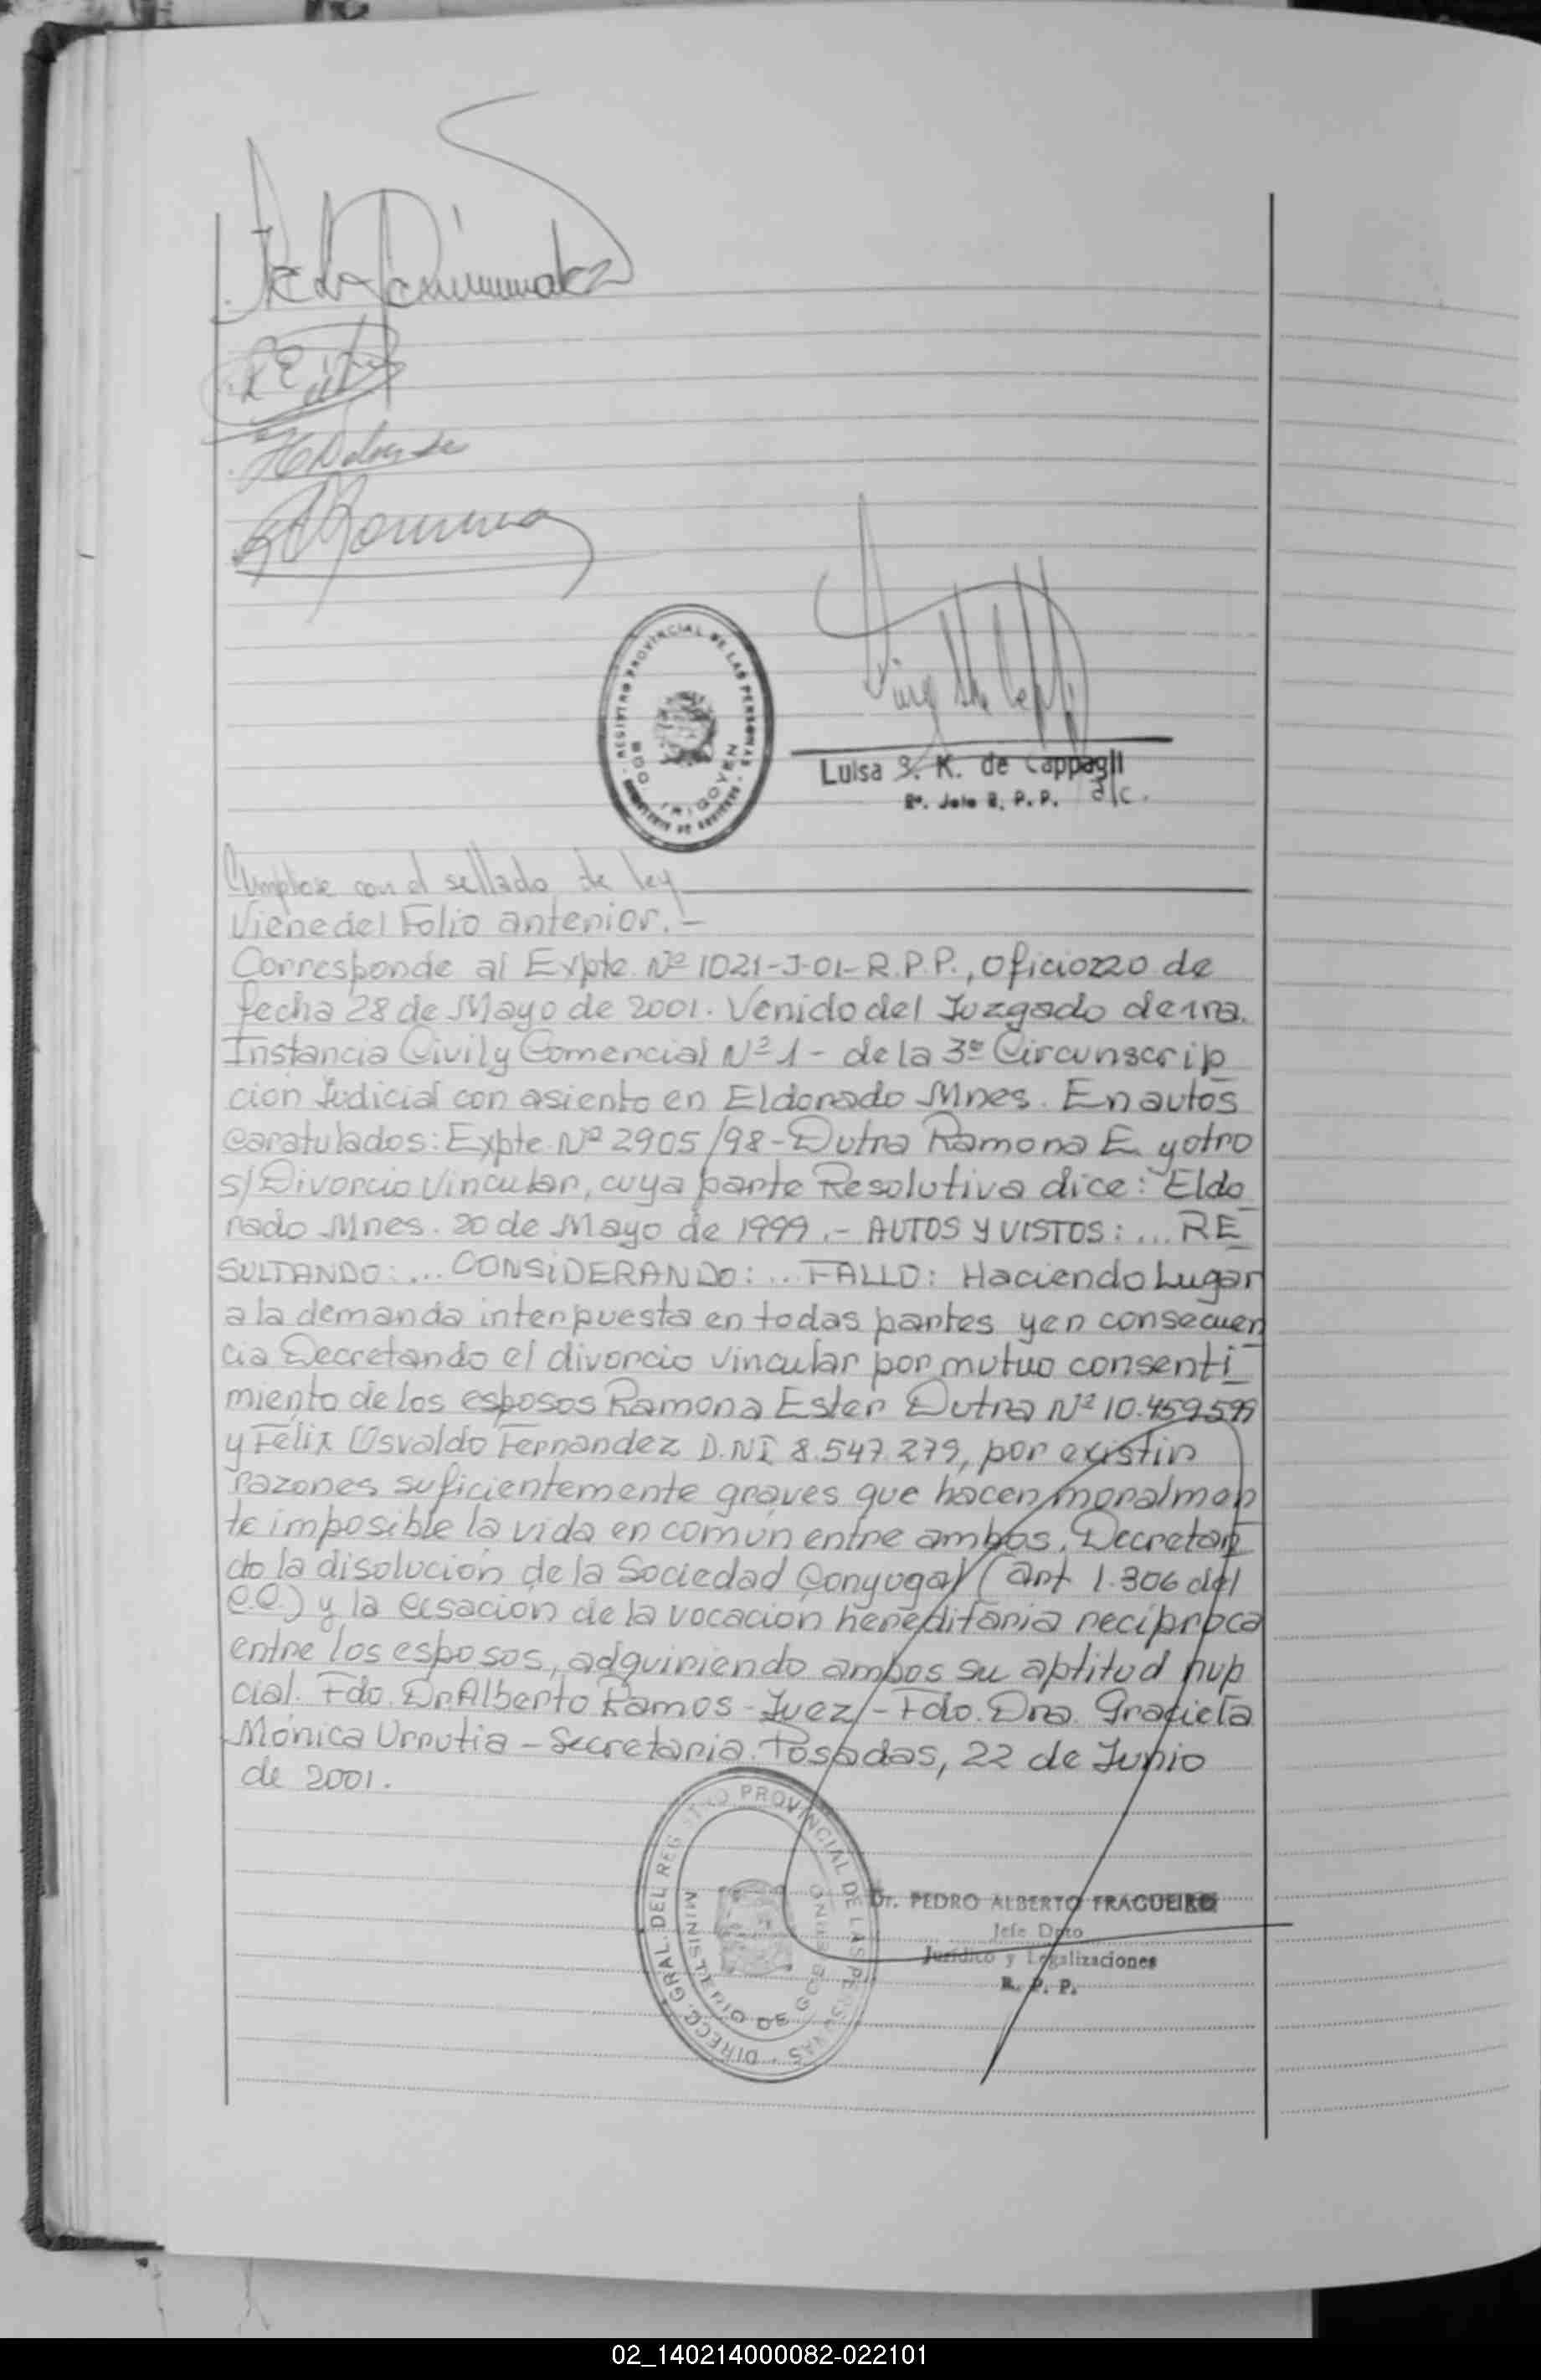 REGISTRO PROVINCIAL DE LAS PERSONAS
BDO. IRIGOYEN
Luisa S. K. de Cappagli
R. P. P. a/c.
Cumplase con el sellado de ley
Viene del Folio anterior.-
Corresponde al Expte. Nº 1021-J-01-R.P.P., oficio 220 de
fecha 28 de Mayo de 2001. Venido del Juzgado de 1ra.
Instancia Civil y Comercial Nº 1 - de la 3º Circunscrip
cion Judicial con asiento en Eldorado Mnes. En autos
caratulados: Expte. Nº 2905/98-Dutra Ramona E. y otro
s/Divorcio Vincular, cuya parte Resolutiva dice: Eldo
rado Mnes. 20 de Mayo de 1999.- AUTOS Y VISTOS: ... RE
SULTANDO: ... CONSIDERANDO: ... FALLO: Haciendo Lugar
a la demanda interpuesta en todas partes y en consecuen
cia Decretando el divorcio vincular por mutuo consenti
miento de los esposos Ramona Ester Dutra Nº 10.459.599
y Félix Osvaldo Fernandez D.NI 8.547.279, por existir
razones suficientemente graves que hacen moralmen
te imposible la vida en común entre ambos. Decretan
do la disolución de la Sociedad Conyugal (art 1.306 del
C.C.) y la cesación de la vocación hereditaria recíproca
entre los esposos, adquiriendo ambos su aptitud nup
cial. Fdo. Dr. Alberto Ramos - Juez - Fdo. Dra. Graciela
Mónica Urrutia - Secretaria. Posadas, 22 de Junio
de 2001.
DIRECC. GRAL. DEL REGISTRO PROVINCIAL DE LAS PERSONAS
MINISTERIO DE GOBIERNO
Dr. PEDRO ALBERTO FRAGUEIRO
Jefe Dpto
Jurídico y Legalizaciones
R. P. P.
02_140214000082-022101